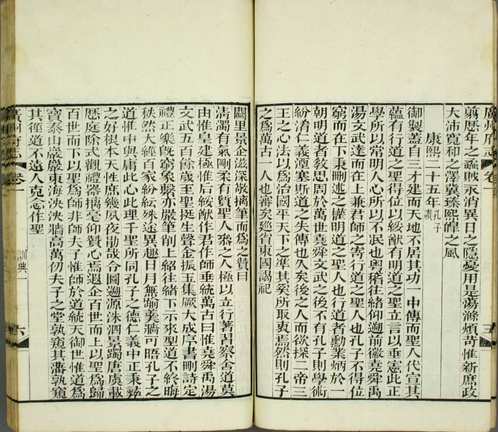 廣州府志 卷一
翦歷年之蟊賊永消異日之隱憂用是蕩滌煩苛惟新庶政
大沛寬和之澤冀臻熙皞之風
康熙二十五年 孔子
御製蓋自三才建而天地不居其功一中傳而聖人代宣其
蘊有行道之聖得位以綏猷有明道之聖立言以垂憲此正
學所以常明人心所以不泯也粵稽往緒仰遡前徽堯舜禹
湯文武達而在上兼君師之寄行道之聖人也孔子不得位
窮而在下秉刪述之權明道之聖人也行道者勳業炳於一
朝明道者教思周於萬世堯舜文武之後不有孔子則學術
紛淆仁義湮塞斯道之失傳也久矣後之人而欲探二帝三
王之心法以為治國平天下之準其奚所取衷焉然則孔子
之為萬古一人也審矣朕巡省東國謁祀
闕里景企滋深敬摛筆而為之贊曰
清濁有氣剛柔有質聖人參之人極以立行著習察舍道莫
由惟皇建極惟后綏猷作君作師垂統萬古曰惟堯舜禹湯
文武五百餘歲至聖挺生聲金振玉集厥大成序書刪詩定
禮正樂既窮象繫亦嚴筆削上紹往緒下示來型道不終晦
秩然大經百家紛紜殊途異趣日月無踰羹牆可晤孔子之
道惟中與庸此心此理千聖所同孔子之德仁義中正秉彝
之好根本天性庶幾夙夜勖哉令圖遡源洙泗景躅唐虞載
歷庭除式觀禮器摛毫仰贊心焉遐企百世而上以聖為歸
百世而下以聖為師非師夫子惟師於道統天御世惟道為
寶泰山巖巖東海泱泱牆高萬仞夫子之堂孰窺其藩孰窺
其徑道不遠人克念作聖
廣州府志 卷一 訓典一 六